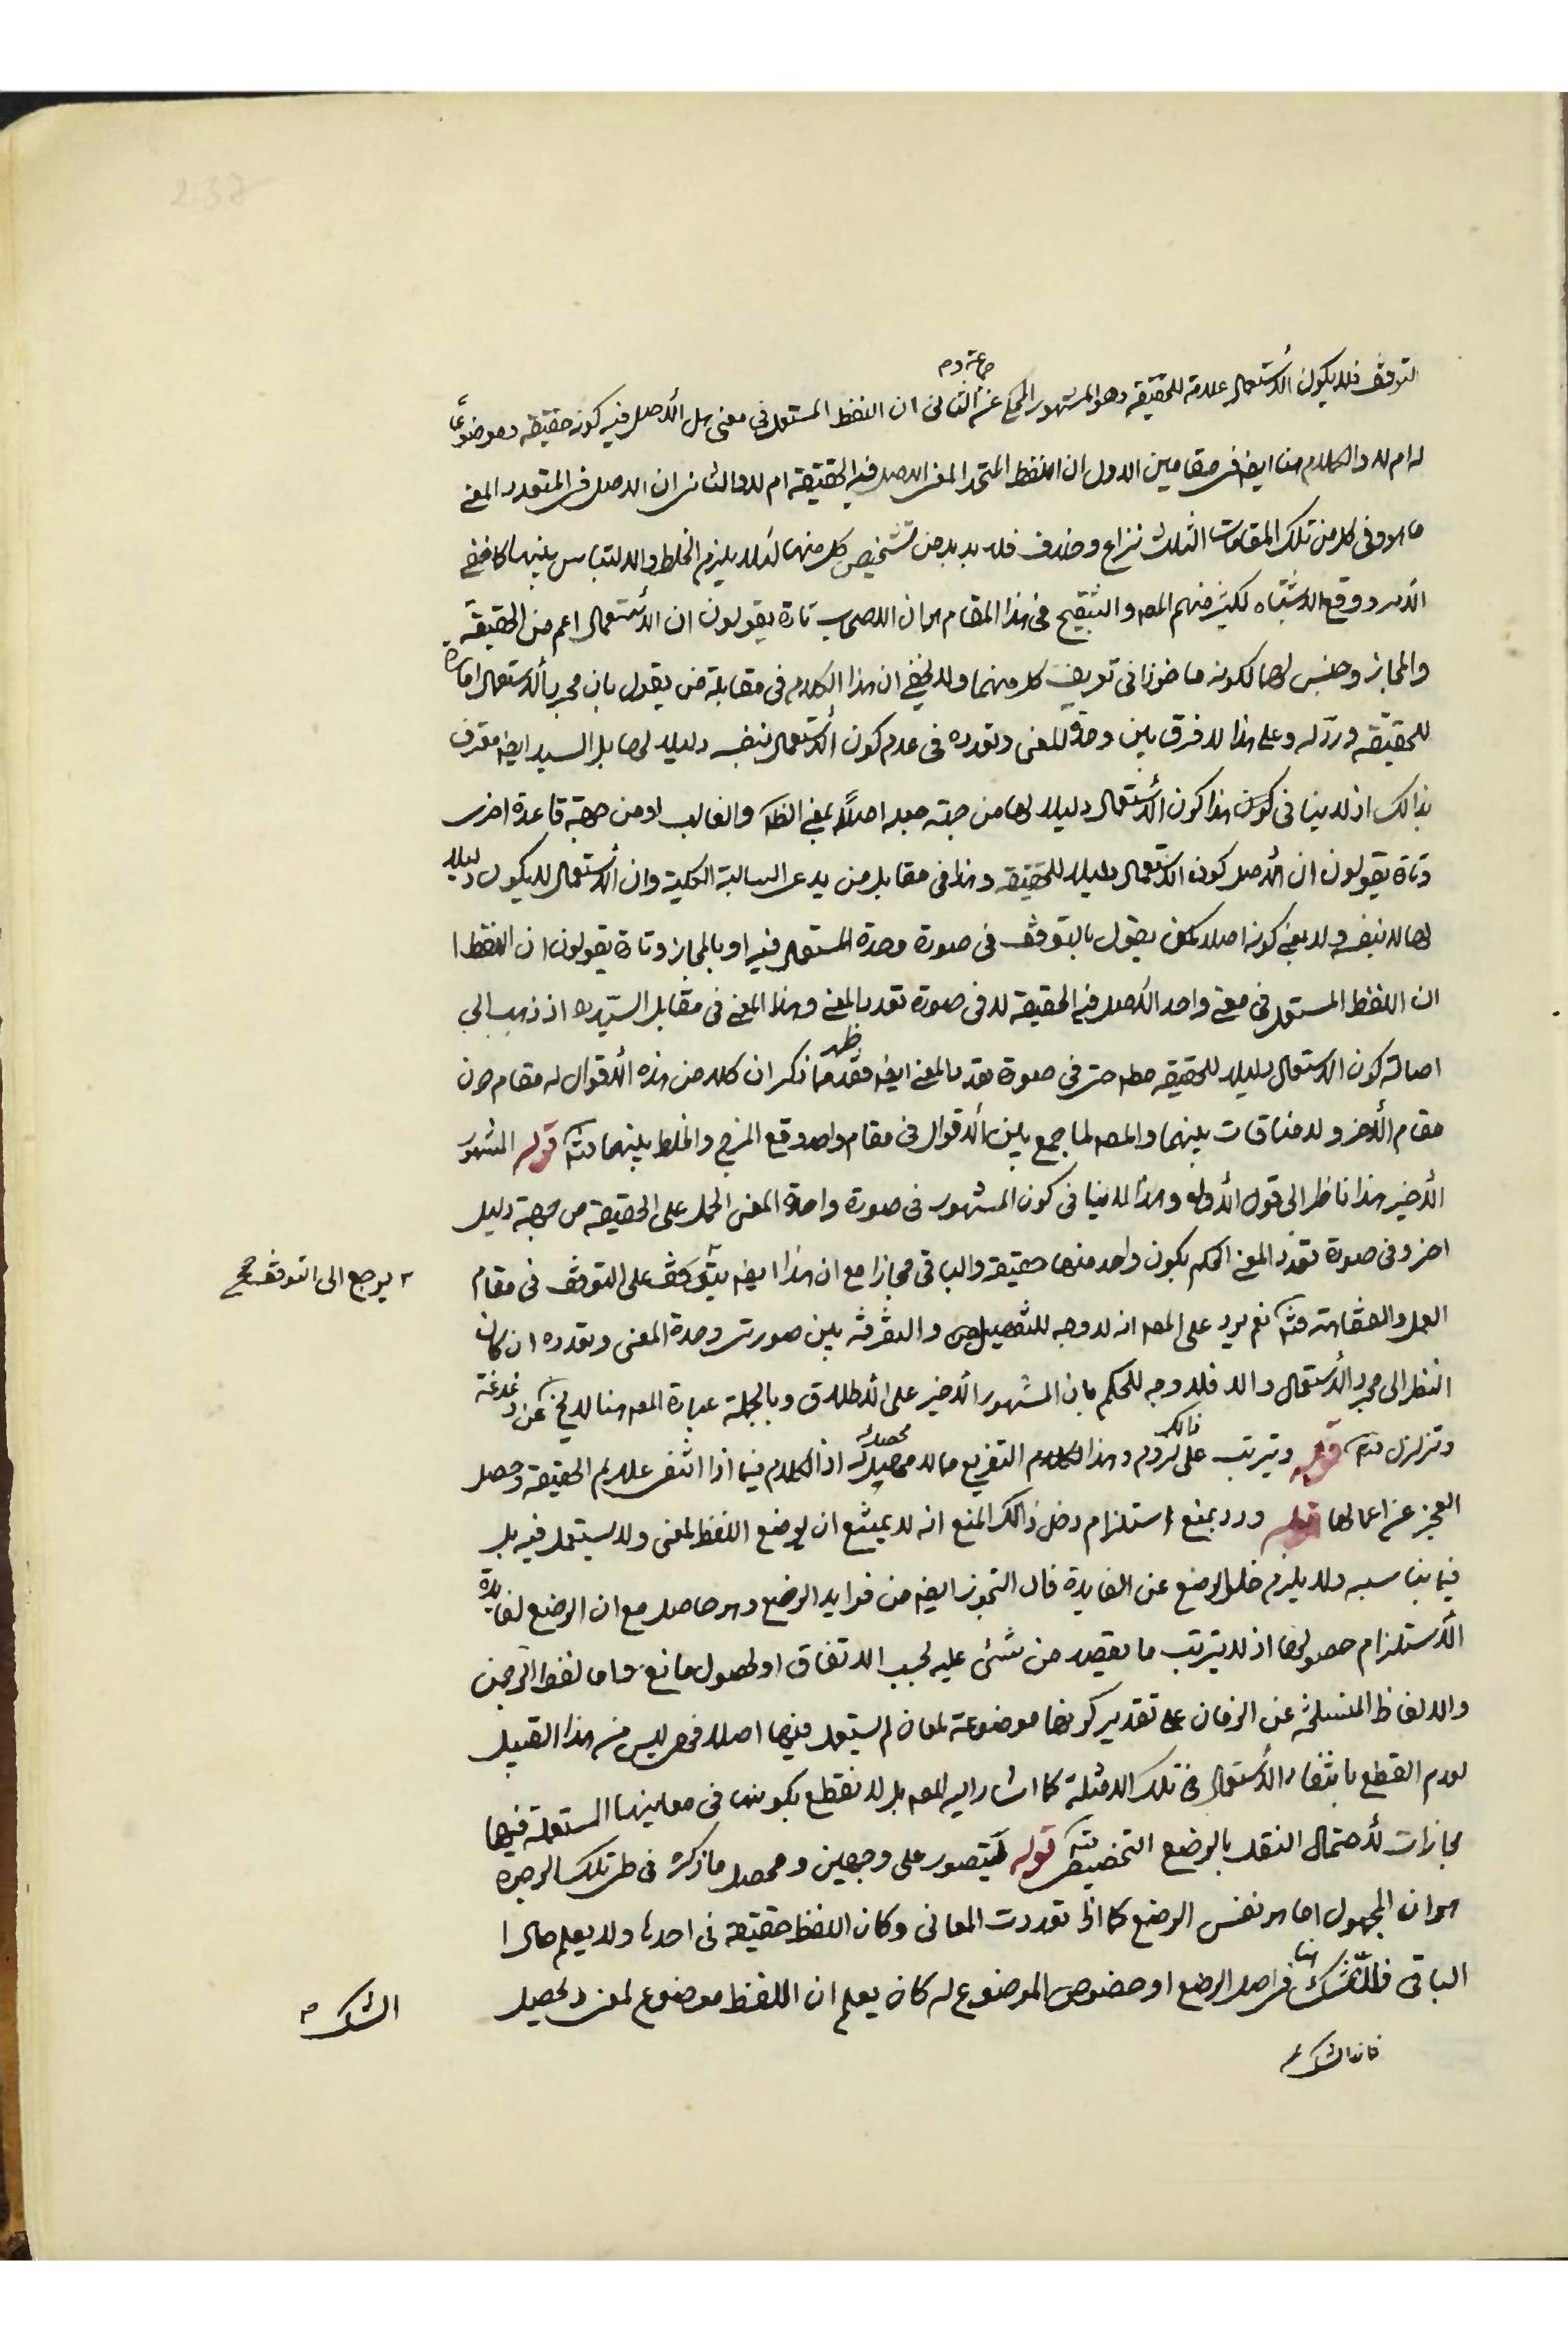 237
التوقف فلا يكون الاستعمال علامة للحقيقة وهو المشهور المحكي عن جماعة الثاني ان اللفظ المستعمل في معنى هل الأصل فيه كونه حقيقة وموضوعا
له ام لا والكلام هنا ايضا في مقامين الاول ان اللفظ المتحد المعنى الاصل فيه الحقيقة ام لا والثاني ان الاصل في المتعدد المعنى
ما هو وفي كل من تلك المقامات الثلث نزاع وخلاف فلا بد بد من تشخيص كل منهما لئلا يلزم الخلط والالتباس بينهما كما خفى
الأمر ووقع الاشتباه لكثير منهم المصـ والتنقيح في هذا المقام هو ان الاصحاب تارة يقولون ان الأستعمال اعم من الحقيقة
والمجاز وجنس لهما لكونه ماخوذا في تعريف كل منهما ولا يخفى ان هذا الكلام في مقابلة من يقول بان مجرد ألاستعمال امارة
للحقيقة ورد له وعلى هذا لا فرق بين وحدة المعنى وتعدده في عدم كون الأستعمال بنفسه دليلا لها بل السيد ايضا معترف
بذالك اذ لا ينافى كون هذا كون الأستعمال دليلا لها من جهة جعله اصلاً بمعنى الظـ والغالب او من جهة قاعدة اخرى
وتارة يقولون ان الأصل كون الاستعمال دليلا للحقيقة وهذا في مقابل من يدعى السالبة الكلية وان الأستعمال لا يكون دليلا
لها لا بنفسه ولا بمعنى كونه اصلا كمن يقول بالتوقف في صورة وحدة المستعمل فيه او بالمجاز وتارة يقولون ان اللفظ ا
ان اللفظ المستعمل في معنى واحد الأصل فيه الحقيقة لا في صورة تعدد المعنى وهذا المعنى في مقابل السيد ره اذ ذهب الى
اصالة كون الاستعمال دليلا للحقيقة مطـ حتى في صورة تعدد المعنى ايضا فقد ظهر مما ذكر ان كلا من هذه الأقوال له مقام دون
مقام الأخر ولا منافات بينهما والمصـ لما جمع بين الأقوال في مقام واحد وقع المزج والخلط بينهما فتـ قوله المشهور
الأخير هذا ناظر الى قول الأول وهذا لا ينافى كون المشهور في صورة واحدة المعنى الحمل على الحقيقة من جهة دليل
اخر وفى صورة تعدد المعنى الحكم بكون واحد منها حقيقة والباقى مجازا مع ان هذا ايضا يتوقف على التوقف في مقام
يرجع الى التوقف صح
العمل والفقاهة فتـ نعم يرد على المصـ انه لا وجه للتفصيل والتفرقة بين صورتى وحدة المعنى وتعدده ان كان
النظر الى مجرد الأستعمال والا فلا وجه للحكم بان المشهور الأخير على الأطلاق وبالجملة عبارة المصـ هنا لا يخـ عن دغدغة
وتزلزل فتـ قوله ويترتب على ذالك لزوم وهذا الكلام التفريع مما لا محصل له اذ الكلام فيما اذا انتفى علايم الحقيقة وحصل
العجز عن اعمالها قوله ورد بمنع استلزام دخل ذالك المنع انه لا يمتنع ان يوضع اللفظ لمعنى ولا يستعمل فيه بل
فيما يناسبه ولا يلزم خلو الوضع عن الفايدة فان التجوز ايضا من فوايد الوضع وهو حاصل مع ان الوضع لفايدة
الأستلزام حصولها اذ لا يترتب ما يقصد من شئ عليه بحسب الاتفاق او لحصول مانع واما لفظ الرحمن
والالفاظ المنسلخة عن الزمان على تقدير كونها موضوعة لمعان لم يستعمل فيها اصلا فهي ليس من هذا القبيل
لعدم القطع بانتفاء الأستعمال في تلك الامثلة كما اشار اليه المصـ بل لا نقطع بكونها في معانيها المستعملة فيها
مجازات لأحتمال النقل بالوضع التخصيصى فتـ قوله يتصور على وجهين ومحصل ما ذكره في طى تلك الوجوه
هو ان المجهول اما هو نفس الوضع كما اذا تعددت المعانى وكان اللفظ حقيقة في احدها ولا يعلم حال ا
الباقى فالشك هنا في اصل الوضع او خصوص الموضوع له كان يعلم ان اللفظ موضوع لمعنى ويحصل
الشك
فانما الشك